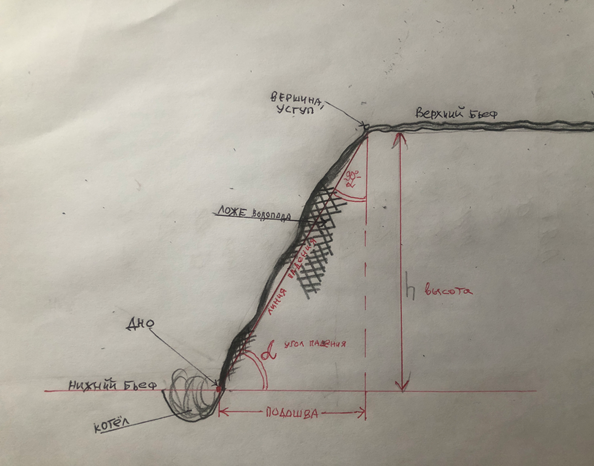 ВЕРШИНА,
УСТУП
Верхний Бьеф
90°-
α
ЛОЖЕ ВОДОПАДА
ЛИНИЯ ПАДЕНИЯ
h высота
ДНО
α УГОЛ ПАДЕНИЯ
НИЖНИЙ БЬЕФ
ПОДОШВА
КОТЁЛ